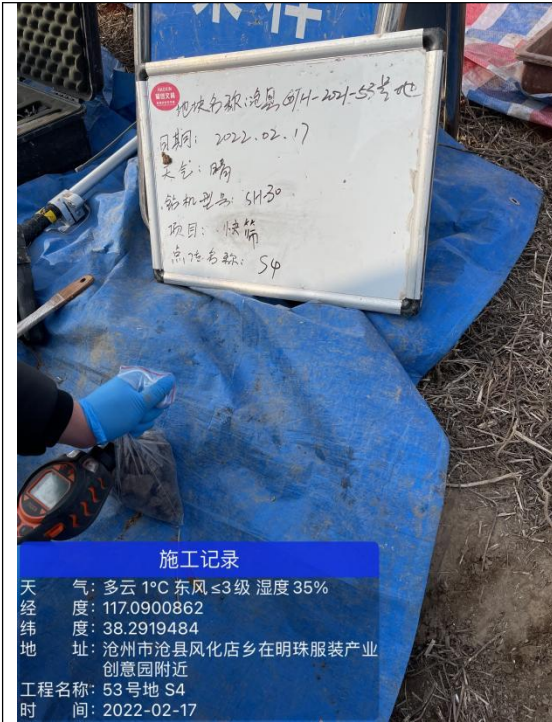 采样
地块名称:沧县CH-2021-53号地
日期: 2022.02.17
天气: 晴
钻机型号: SH-30
项目: 快筛
点位名称: S4
施工记录
天 气: 多云 1°C 东风 ≤3级 湿度 35%
经 度: 117.0900862
纬 度: 38.2919484
地 址: 沧州市沧县风化店乡在明珠服装产业
创意园附近
工程名称: 53号地 S4
时 间: 2022-02-17